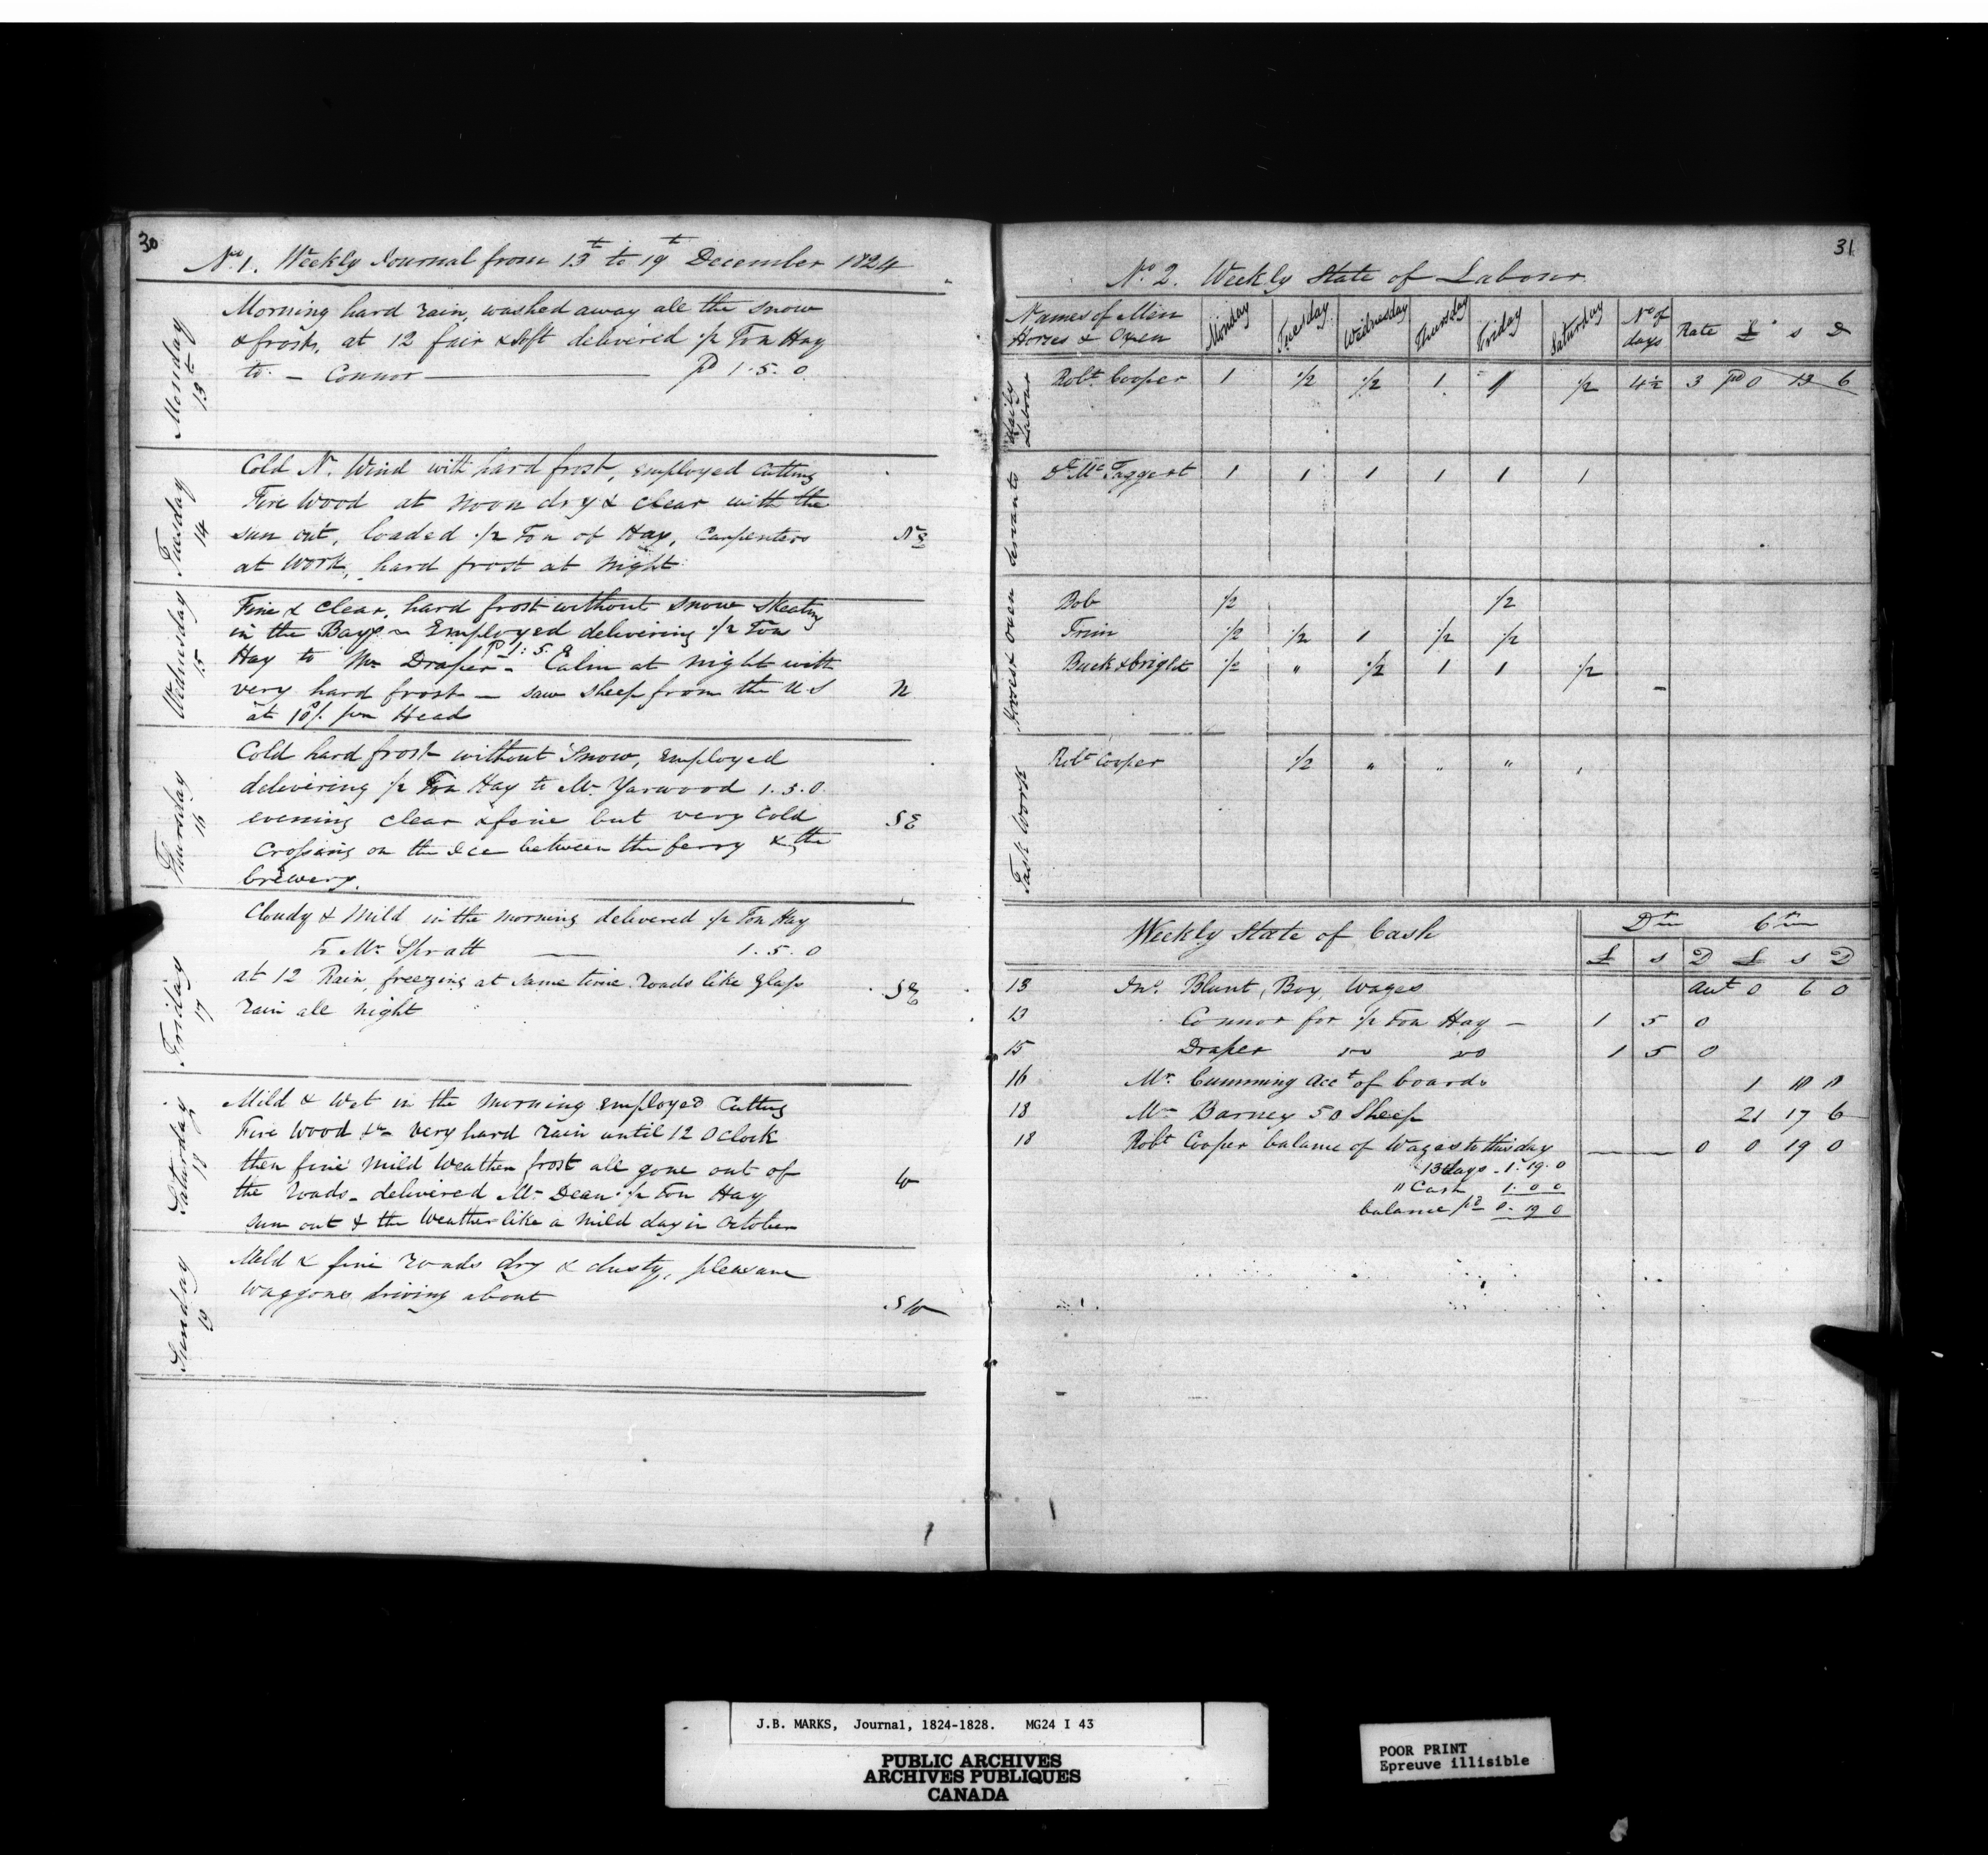 30
No. 1. Weekly Journal from 13th to 19th December 1824
Monday 13th
Morning hard rain, washed away all the snow
& frosts, at 12 fair & soft delivered 1/2 Ton Hay
to - Connor — pd 1.5.0
Tuesday 14
Cold N. Wind with hard frost, employed cutting
Fire Wood at noon dry & clear with the
sun out, loaded 1/2 Ton of Hay, Carpenters
at work, hard frost at night
Wednesday 15
Fine & clear, hard frost without snow skeating
in the Bays - Employed delivering 1/2 Ton
Hay to Mr Draper - pd 1:5.0 Calm at night with
very hard frost - saw sheep from the U S N
at 10/. per Head
Thursday 16
Cold hard frost without Snow, employed
delivering 1/2 Ton Hay to Mr Yarwood 1.5.0
evening clear & fine but very cold SE
Crossing on the Ice between the ferry & the
brewery.
Friday 17
Cloudy & Mild in the morning delivered 1/2 Ton Hay
To Mr Spratt — 1.5.0
at 12 Rain, freezing at same time. roads like glass SE
rain all night
Saturday 18
Mild & Wet in the morning employed Cutting
Fire Wood &c - very hard rain until 12 OClock
then fine mild Weather frost all gone out of
the roads - delivered Mr Dean 1/2 Ton Hay W
sun out & the Weather like a mild day in October
Sunday 19
Mild & fine roads dry & dusty, pleasant
Waggones driving about SW
31
No 2. Weekly State of Labour
Names of Men Horses & Oxen Monday Tuesday Wednesday Thursday Friday Saturday No of days Rate £ s D
Daily Labour
Robt Cooper 1 1/2 1/2 1 1 1/2 4 1/2 3 pd 0 13 6
Servants
Dl McTaggert 1 1 1 1 1 1
Horses & oxen
Bob 1/2 1/2
Trim 1/2 1/2 1 1/2 1/2
Buck & bright 1/2 " 1/2 1 1 1/2
Task Work
Robt Cooper 1/2 " " " "
Weekly State of Cash Dr Cr
£ s D £ s D
13 Jno. Blunt, Boy, Wages 0 6 0
13 Connor for 1/2 Ton Hay - 1 5 0
15 Draper do do 1 5 0
16 Mr. Cumming acct of boards 1 18 11
18 Mr Barney 50 Sheep 21 17 6
18 Robt Cooper balance of Wages to this day 0 0 19 0
13 days - 1.19.0
" Cash 1.0 0
balance pd 0.19 0
J.B. MARKS, Journal, 1824-1828. MG24 I 43
PUBLIC ARCHIVES
ARCHIVES PUBLIQUES
CANADA
POOR PRINT
Epreuve illisible